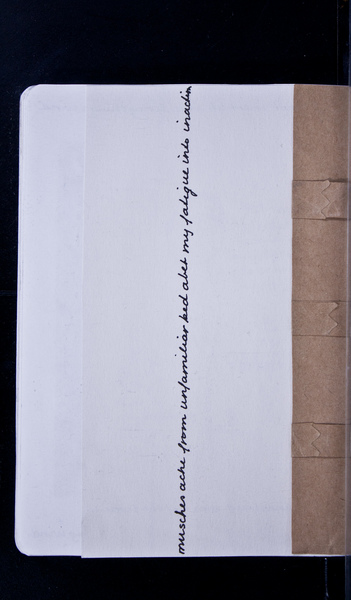 musches ache from unfamiliar bed abet my fatigue into inactin